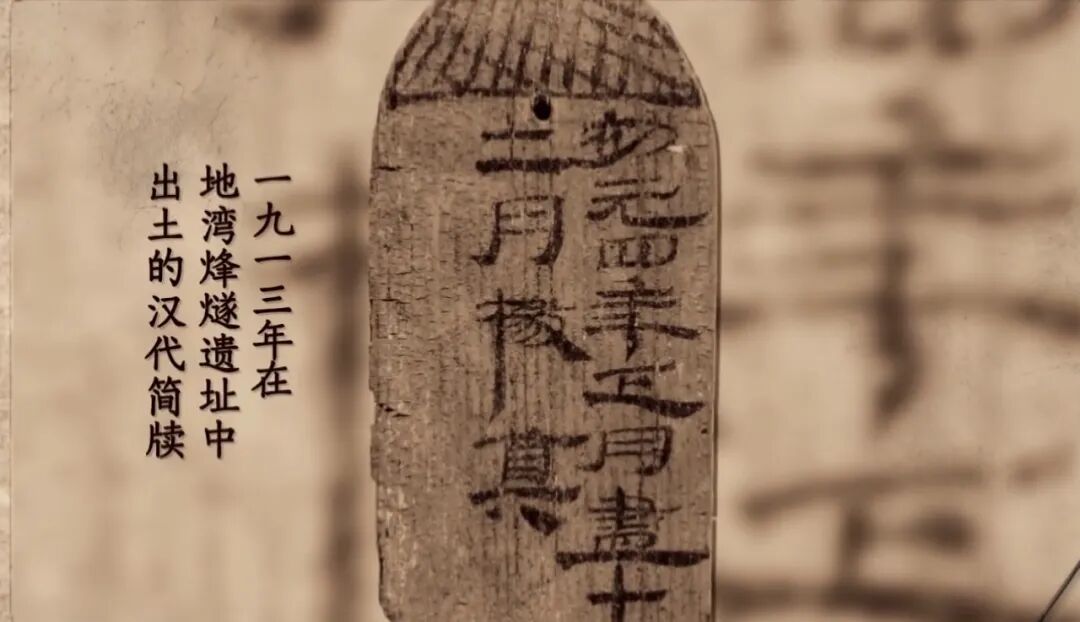 一九一三年在
地湾烽燧遗址中
出土的汉代简牍
初元四年正月盡十
二月